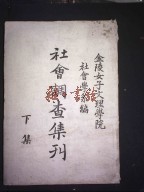 金陵女子文理學院
社會學系編
社會調查集刊
下集